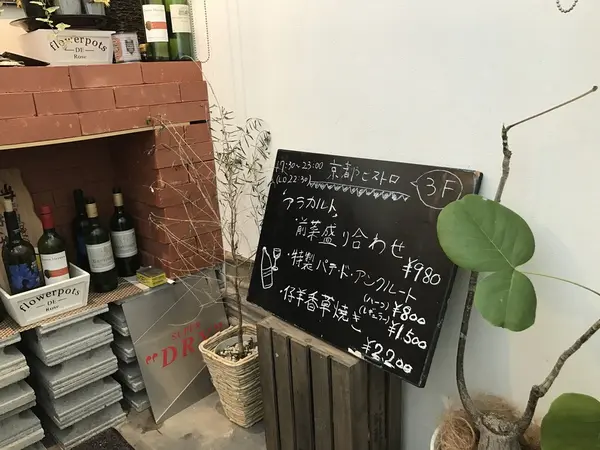 flowerpots
DE
Rose
17:30~23:00 京都ビストロ
(L.O 22:30)
3F
アラカルト
前菜盛り合わせ
¥980
・特製パテ・ド・アンクルート
(ハーフ) ¥800
(レギュラー) ¥1,500
・仔羊香草焼き
¥2200
flowerpots
DE
Rose
SUPER
DR